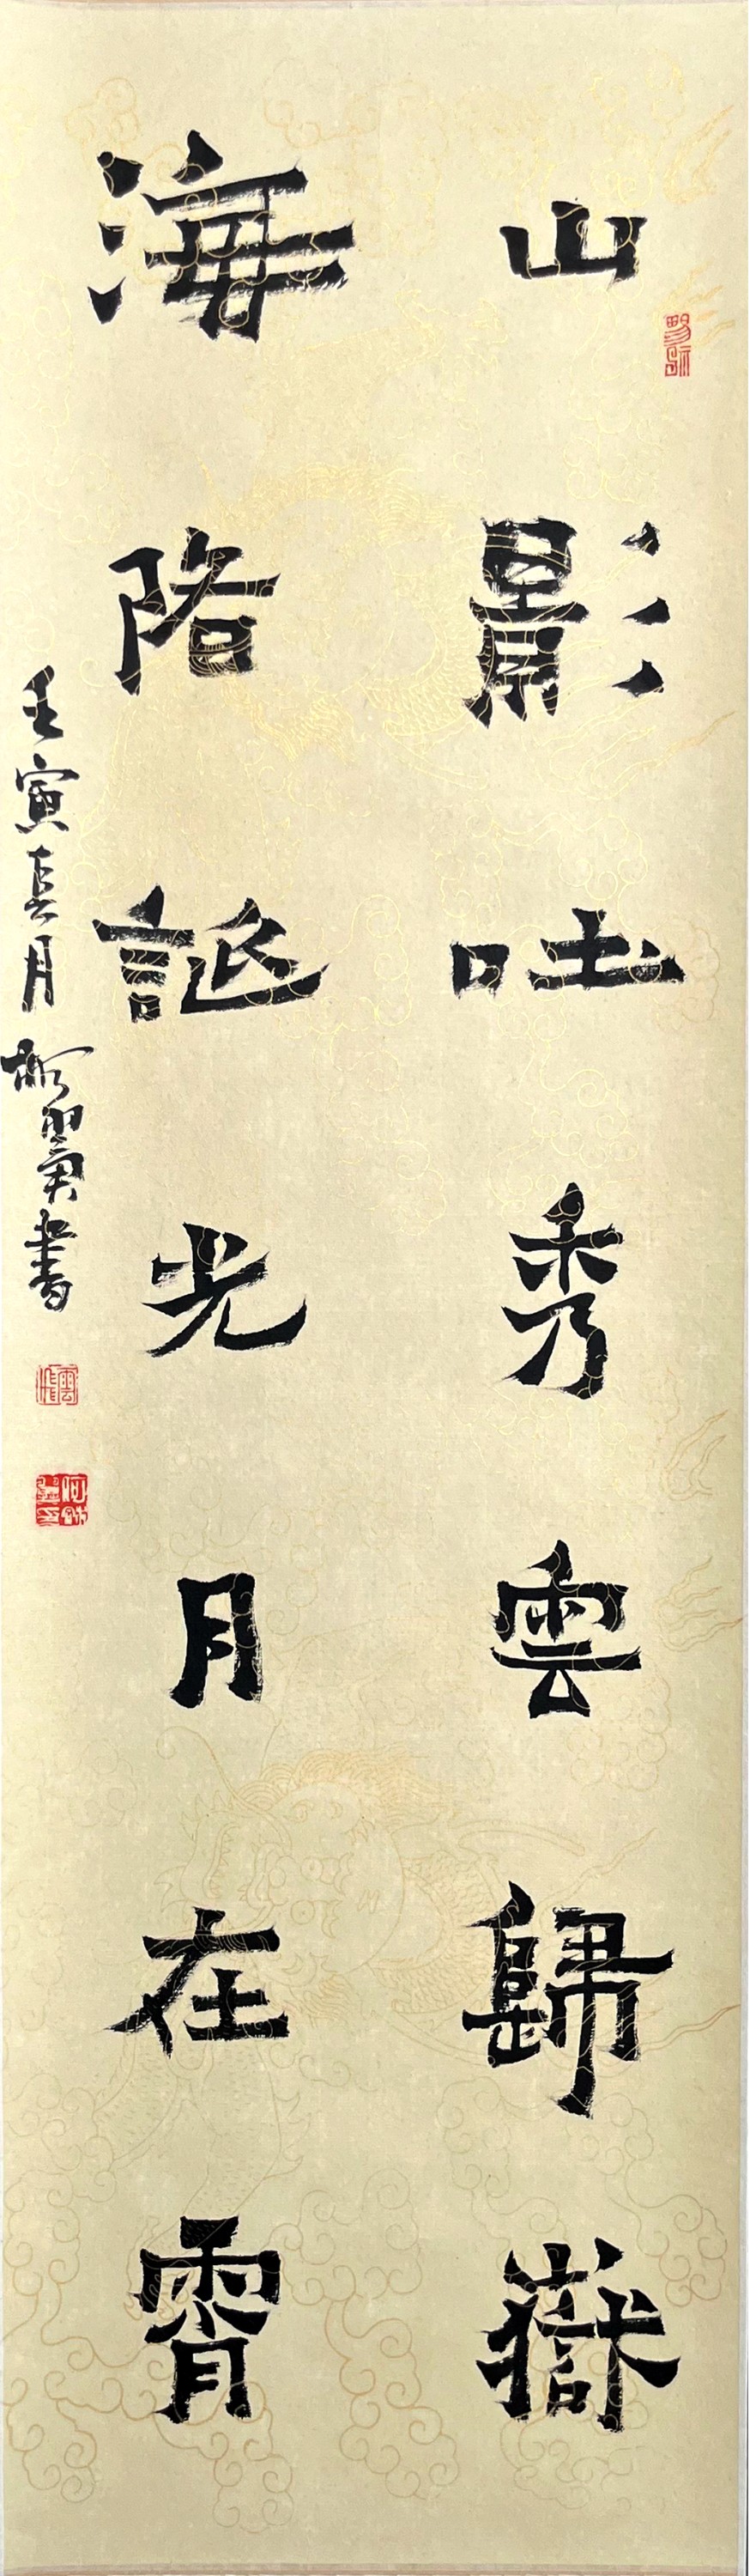 山影吐秀雲歸嶽
海誕光月在霄
壬寅月書